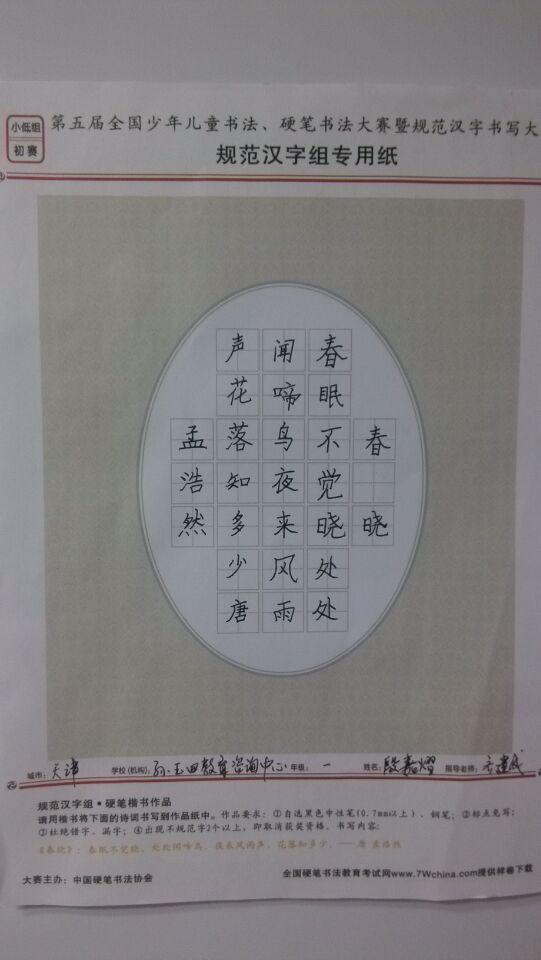 小低组
初赛
第五届全国少年儿童书法、硬笔书法大赛暨规范汉字书写大
规范汉字组专用纸
春晓
春眠不觉晓处处
闻啼鸟夜来风雨
声花落知多少唐
孟浩然
城市：天津 学校(机构)：孙玉田教育咨询中心 年级：一 姓名：殷嘉熠 指导老师：
规范汉字组•硬笔楷书作品
请用楷书将下面的诗词书写到作品纸中。作品要求：①自选黑色中性笔(0.7mm以上)、钢笔；②标点免写；
③杜绝错字、漏字；④出现不规范字2个以上，即取消获奖资格。书写内容：
《春晓》：春眠不觉晓，处处闻啼鸟。夜来风雨声，花落知多少。——唐 孟浩然
大赛主办：中国硬笔书法协会 全国硬笔书法教育考试网www.7Wchina.com提供样卷下载